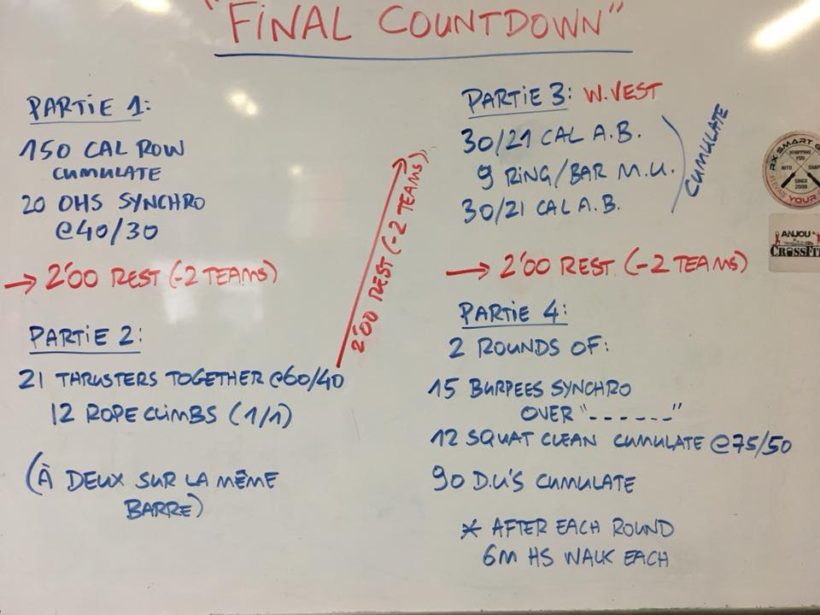 "FINAL COUNTDOWN"
PARTIE 1:
150 CAL ROW
CUMULATE
20 OHS SYNCHRO
@40/30
→ 2'00 REST (-2 TEAMS)
PARTIE 2:
21 THRUSTERS TOGETHER @60/40
12 ROPE CLIMBS (1/1)
(À DEUX SUR LA MÊME
BARRE)
2'00 REST (-2 TEAMS)
PARTIE 3: W.VEST
30/21 CAL A.B.
9 RING/BAR M.U.
30/21 CAL A.B.
CUMULATE
→ 2'00 REST (-2 TEAMS)
PARTIE 4:
2 ROUNDS OF:
15 BURPEES SYNCHRO
OVER "------"
12 SQUAT CLEAN CUMULATE @75/50
90 D.U'S CUMULATE
* AFTER EACH ROUND
6M HS WALK EACH
RX SMART G
SINCE
2008
YOUR
ANJOU
CROSSFIT